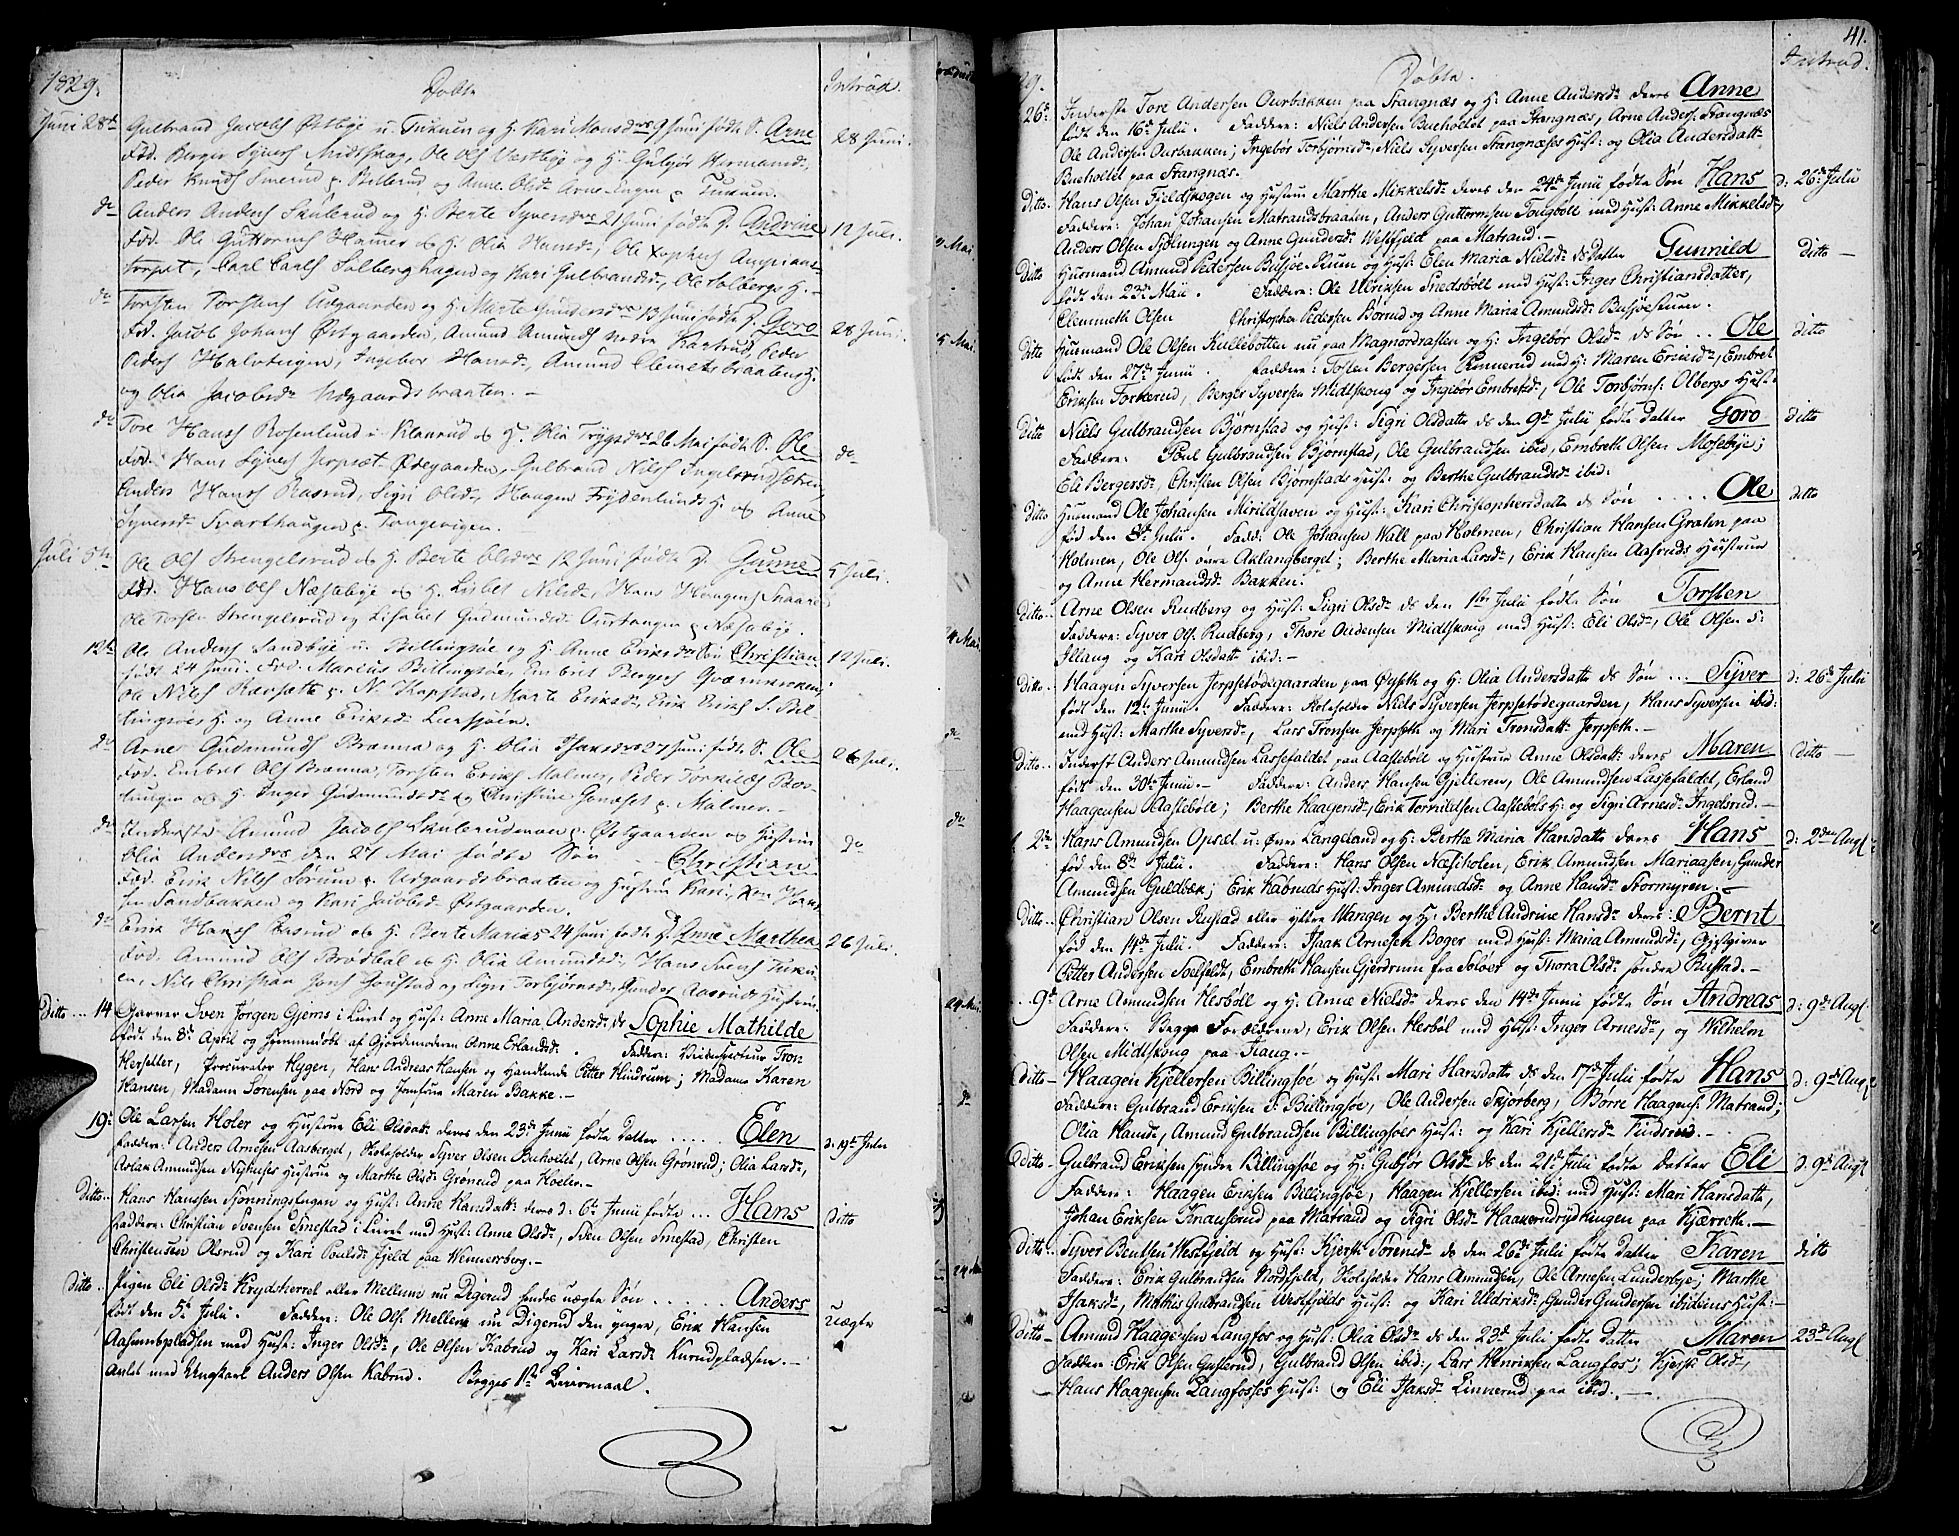 1829.
Døbte
Introd.
Juni 28de Gulbrand Jacobs Østbye u. Tukuen og H. Kari Monsdr 9 Juni fødte S. Arne 28 Juni.
Fad. Berger Syvers Midtskog, Ole Ols Vestbye og H. Gubjør Hermansd.,
Peder Knuds Smerud p. Billerud og Anne Olsdr Arne-Engen p. Tukun.
do Anders Anders Skulerud og H. Berte Syversdr 21 Juni fødte D. Andrine 12 Juli.
Fad. Ole Guttorms Hamer og H. Olia Hansdr, Ole Xophers
torpet, Carl Carls Solberghagen og Kari Gulbrandsdr, Ole Solbergs H.
do Torsten Torstens Udgaarden og H. Marte Gundersdr 13 Juni fødte D. Goro 28 Juni.
Fad. Jacob Johans Østgaarden, Amund Amunds nedre Kastrud, Peder
Peders Halvdengen, Ingebor Hansdr, Amund Clemetsbraatens H.
og Olia Jacobsdr Udgaardsbraaten.
do Tore Hans Rosenlund i Klanrud og H. Olia Trygsdr 26 Mai fødte S. Ole do
Fad. Hans Syvers Jerpset-Ødegaarden, Gulbrand Nils Ingelsrudsætren,
Anders Hans Rasrud, Sigri Olsdr, Haagen Frydenlunds H. og Anne
Syversdr Svarthaugen p. Tangevigen.
Juli 5te Ole Ols Strengelsrud og H. Berte Olsdr 12 Juni fødte D. Gunne 5 Juli.
Fad. Hans Ols Næsebye og H. Lisbet Nilsdr, Hans Haagens Skaare
Ole Torstens Strengelsrud og Lisabet Gudmundsdr Ourtangen p. Næsebye.
12te Ole Anders Sandbye u. Billingsøe og H. Anne Eriksdr Søn Christian 12 Juli.
født 24 Juni. Fad. Marius Billingsøe, Embret Bergers Qværnbakken,
Ole Nils Rævsætte p. N. Kapstad, Marte Eriksdr, Erik Eriks S. Bil-
lingsøes H. og Anne Eriksdr Leersjøen.
do Arne Gudmunds Brenna og H. Olia Isaksdr 27 Juni fødte S. Ole 26 Juli.
Fad. Embret Ols Brenna, Torsten Eriks Malmer, Peder Torkilds Bov-
lungen og H. Inger Gudmundsdr og Christine p. Malmer.
do Inderste Amund Jacobs Skulerudmoen p. Østgaarden og Hustru
Olia Andersdr den 27 Mai fødte Søn Christian do
Fad. Erik Nils Sørum p. Udgaardsbraaten og Hustru Kari, Xen Hans
Sandbakken og Kari Jacobsdr Østgaarden.
do Erik Hans Rasrud og H. Berte Marias 24 Juni fødte D. Anne Marthea 26 Juli.
Fad. Amund Ols Brødbøl og H. Olia Amundsdr, Hans Svens Tuku-
en, Nils Christian Jons Joustad og Sigri Torbjørnsdr, Gunder Aasruds Hustru.
Ditto .. 14 Garver Sven Jørgen Gjems i Luret og Hust: Anne Maria Andersdr ds Sophie Mathilde
født den 8de April og hjemmedøbt af Gjordemoderen Anne Erlandsdr. Faddere: Veiinspecteur Tron
Hersetter, Procurator Hygen, Hans Andreas Hansen og Handlende Petter Hindrum; Madame Karen
Hansen, Madam Sørensen paa Nord og Jomfrue Maren Bakke.
19: Ole Larsen Holer og Hustrue Eli Olsdatt: deres den 23de Junii fødte Datter ..... Elen d: 19de Julii
Faddere: Anders Arnesen Aasberget, Kobeholder Syver Olsen Buholtet, Arne Olsen Grønerud; Olia Larsdr,
Aslak Amundsen Nyhuses Hustrue og Marthe Olsdr Grønerud paa Hoeler.
Ditto.. Hans Hanssen Sjønningshagen og Hust: Anne Hansdatt: deres d: 6te Junii fødte ... Hans Ditto
Faddere: Christian Svensen Sinestad i Luret med Hust: Anne Olsdr, Sven Olsen Sinestad, Christen
Christensen Olsrud og Kari Poulsdr Fjeld paa Wennersberg.
Ditto.. Pigen Eli Olsdr Krydsherret eller Mellum nu Digerud hendes uægte Søn ...... Anders
født den 5te Julii. Faddere: Ole Ols: Mellem nu Digerud den yngre, Erik Hansen Uægte
Aasumbpladsen med Hust: Inger Olsdr, Ole Olsen Kabrud og Kari Larsdr Kurudpladsen.
Avlet med Ungkarl Anders Olsen Kabrud. Begges 1ste Leiermaal.
41.
29.
Døbte.
Introd.
26de Inderste Tore Andersen Ourbakken paa Stangnæs og H: Anne Andersdr deres Anne
født den 16de Julii. Faddere: Niels Andersen Bueholtet paa Stangnæs, Arne Anders: Stangnæs
Ole Andersen Ourbakken; Ingebør Torbjørnsdr, Niels Syversen Stangnæses Hust: og Olia Andersdatt:
Bueholtet paa Stangnæs.
Ditto. Hans Olsen Fjeldskogen og Hustrue Marthe Mikkelsdr deres den 24de Junii fødte Søn Hans d: 26de Julii
Faddere: Johan Johansen Matrandsbraaten, Anders Guttormsen Tongbøll med Hust: Anne Mikkelsdr,
Anders Olsen Sjølungen og Anne Gundersdr Westfjeld paa Matrand.
Ditto Husmand Amund Pedersen Busjøe-Stuen og Hust: Elen Maria Nielsdr ds Datter Gunnild Ditto
født den 23de Maii. Faddere: Ole Ulriksen Snedsbøll med Hust: Inger Christiansdatter,
Clemmeth Olsen Christopher Pedersen Børrud og Anne Maria Amundsdr Busjøestuen.
Ditto Husmand Ole Olsen Kullebotten nu paa Magnordrasten og H: Ingebør Olsdr ds Søn .. Ole Ditto
født den 27de Junii. Faddere: Tosten Bergersen Rinnerud med H: Maren Eriksdr, Embret
Eriksen Torkerud, Berger Syversen Midtskong og Ingebør Embretsdr, Ole Torbjørns: Olbergs Hust:
Ditto Niels Gulbrandsen Bjørnstad og Hust: Sigri Olsdattr ds den 9de Julii fødte Datter Goro Ditto
Faddere: Poul Gulbrandsen Bjørnstad, Ole Gulbrandsen ibid, Embreth Olsen Mosebye;
Eli Bergersdr, Christen Olsen Bjørnstads Hust: og Berthe Gulbrandsdr ibid:
Ditto Husmand Ole Johansen Mirildhaven og Hust: Kari Christophersdatter ds Søn .... Ole Ditto
fød den 8de Julii. Fadd: Ole Johansen Wall paa Holmen, Christian Hansen Grahn paa
Holmen, Ole Ols: øvre Aklangberget; Berthe Maria Larsdr, Erik Hansen Aasruds Hustrue
og Anne Hermandsdr Bakken:
Ditto.. Arne Olsen Rudberg og Hust: Sigri Olsdr ds den 1ste Julii fødte Søn Torsten
Faddere: Syver Ols: Rudberg, Thore Oudensen Midtskong med Hust: Eli Olsdr, Ole Olsen S:
Illang og Kari Olsdatt: ibid:
Ditto.. Haagen Syversen Jerpsetødegaarden paa Øyseth og H: Olia Andersdatter ds Søn ... Syver d: 26de Julii
født den 12te Junii. Faddere: Kobeholder Niels Syversen Jerpsetødegaarden, Hans Syversen ibid:
med Hust: Marthe Syversdr, Lars Tronsen Jerpseth og Mari Tronsdatt: Jerpseth.
Ditto.. Inderst Anders Amundsen Lassefaldet paa Aaslebøl og Hustrue Anne Olsdatt: deres Maren Ditto
født den 30te Junii. Faddere: Anders Hansen Gjelleren, Ole Amundsen Lassefaldet, Erland
Haagensen Aaslebøl; Berthe Haagensdr, Erik Torkildsen Aaslebøls H: og Sigri Arnesdr Ingelsrud.
2de Hans Amundsen Opset u: øvre Langeland og H: Berthe Maria Hansdatter deres Hans d: 2den Aug:
fød den 8de Julii. Faddere: Hans Olsen Næsiholen, Erik Amundsen Mariaasen, Gunder
Amundsen Guldbæk; Erik Kabruds Hust: Inger Amundsdr og Anne Hansdr Stormyren.
Ditto.. Christian Olsen Rustad eller yttre Wangen og H: Berthe Andrine Hansdr deres: Bernt
fød den 14de Julii. Faddere: Isaak Arnesen Boger med Hust: Maria Amundsdr, Gjestgiver
Petter Andersen Soelfeldt, Embreth Hansen Gjerdrum fra Soløer og Thora Olsdr søndre Rustad.
9de Arne Amundsen Hesbøll og H: Anne Nielsdr deres den 14de Junii fødte Søn Andreas d: 9de Aug:
Faddere: Begge Forældrene, Erik Olsen Hesbøl med Hust: Inger Arnesdr, og Wilhelm
Olsen Midtskong paa Traug.
Ditto Haagen Kjellersen Billingsøe og Hust: Mari Hansdatter ds den 17de Julii fødte Hans d: 9de Aug:
Faddere: Gulbrand Eriksen S: Billingsøe, Ole Andersen Skjørberg, Børre Haagens: Matrand;
Olia Hansdr, Amund Gulbrandsen Billingsøes Hust: og Kari Kjellersdr Findsrud.
Ditto Gulbrand Eriksen søndre Billingsøe og H: Gubjør Olsdr ds den 21de Julii fødte Datter Eli d: 9de Aug:
Faddere: Haagen Eriksen Billingsøe, Haagen Kjellersen ibid: med Hust: Mari Hansdatt,
Johan Eriksen Knauserud paa Matrand og Sigri Olsdr Haakerudrydningen paa Kjærreth.
Ditto.. Syver Bentsen Westfjeld og Hust: Kjersti Sørensdr ds den 26de Julii fødte Datter Karen Ditto
Faddere: Erik Gulbrandsen Nordfjeld, Kobeholder Hans Amundsen, Ole Arnesen Lunderbye; Marthe
Isaksdr, Mathis Gulbrandsen Westfjelds Hust: og Kari Uldriksdr, Gunder Gundersen ibidens Hust:
Ditto Amund Haagensen Langfos og Hust: Olia Olsdr ds den 23de Julii fødte Datter Maren 23de Aug:
Faddere: Erik Olsen Gusterud, Gulbrand Olsen ibid:, Lars Henriksen Langfos; Kjersti Olsdr,
Hans Haagensen Langfosses Hust: og Eli Isaksdr Linnerud paa ibid.